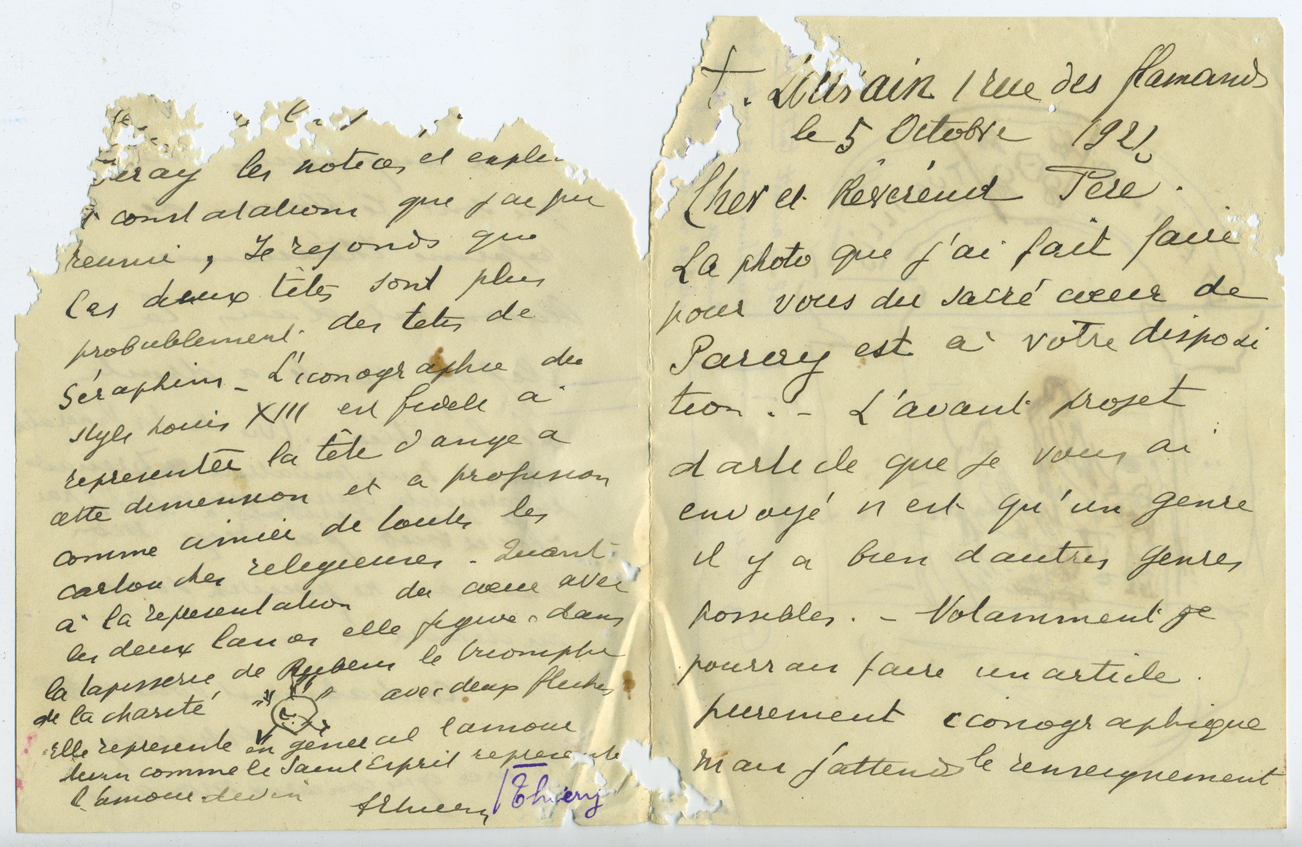 † . Louvain 1 rue des flamands
le 5 Octobre 1921
Cher et Révérend Père.
La photo que j'ai fait faire
pour vous du sacré cœur de
Parcey est à votre disposi
tion. - L'avant projet
d'article que je vous ai
envoyé n'est qu'un genre
il y a bien d'autres genres
possibles. - Notamment je
pourrai faire un article
purement iconographique
mais j'attends le renseignement
les notices et
constatations que j'ai pu
reunir, Je reponds que
les deux têtes sont plus
probablement des tetes de
Séraphins - L'iconographie du
style Louis XIII est fidele à
representer la tête d'ange a
cette dimension et a profusion
comme cimier de toutes les
cartouches religieuses. Quant
à la representation du cœur avec
les deux lances elle figure dans
la tapisserie de Rubens le triomphe
de la charité avec deux fleches
Elle represente en general l'amour
tout comme le Saint Esprit represente
l'amour divin
AThiery Thiery